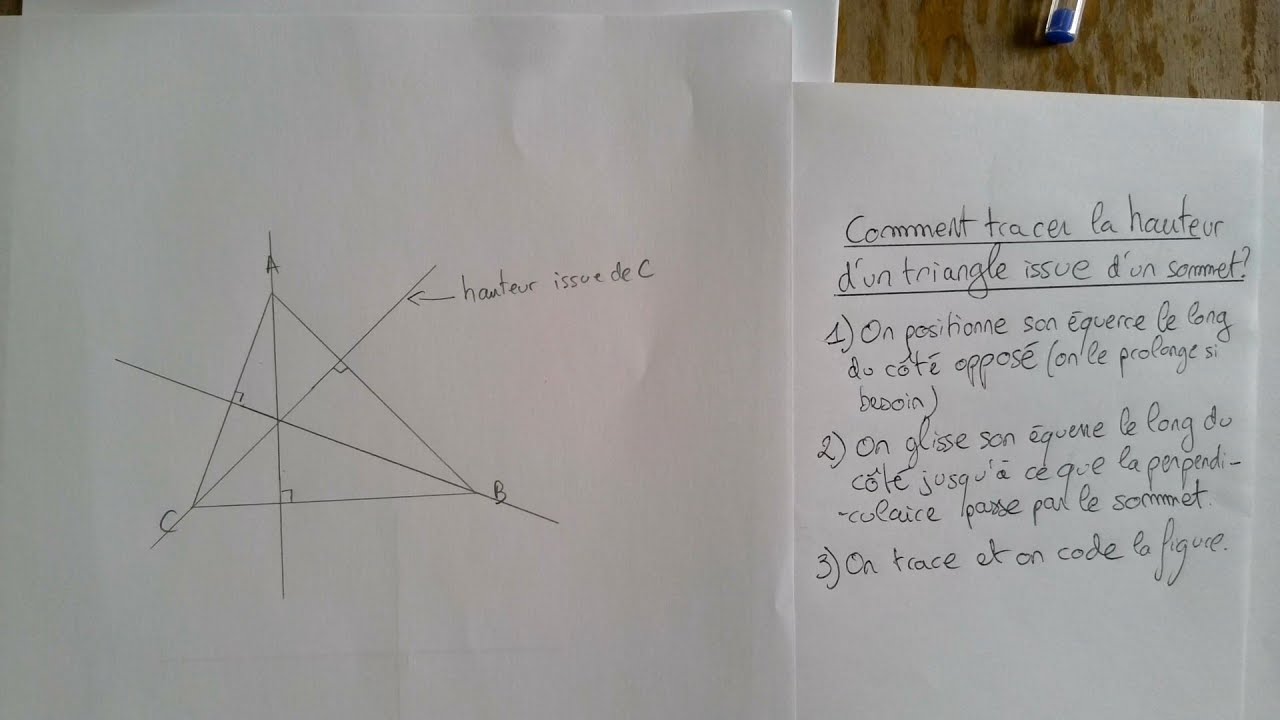 A
hauteur issue de C
C
B
Comment tracer la hauteur
d'un triangle issue d'un sommet?
1) On positionne son équerce le long
du côté opposé (on le prolonge si
besoin)
2) On glisse son équerre le long du
côté jusqu'à ce que la perpendi-
-culaire passe par le sommet.
3) On trace et on code la figure.